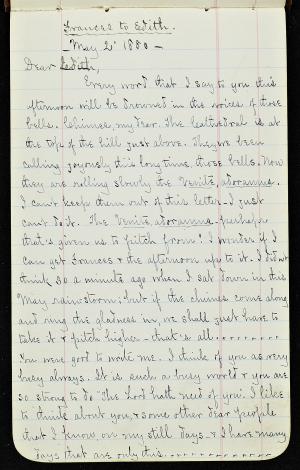 Frances to Edith.
- May 2' 1880 -
Dear Edith,
Every word that I say to you this
afternoon will be drowned in the voices of those
bells. Chimes, my dear. The Cathedral is at
the top of the hill just above. They've been
calling joyously this long time, those bells. Now
they are rolling slowly the Venite, adoramus.
I can't keep them out of this letter - I just
can't do it. The Venite, adoramus - perhaps
that's given us to pitch from! I wonder if I
can get Frances & the afternoon up to it. I didn't
think so a minute ago when I sat down in this
May rainstorm; but if the chimes come along
and ring the gladness in, we shall just have to
take it & pitch higher - that's all..........
You were good to write me. I think of you as very
busy always. It is such a busy world & you are
so strong to do "The Lord hath need of you". I like
to think about you, & some other dear people
that I know, on my still days. & I have many
days that are only this..............